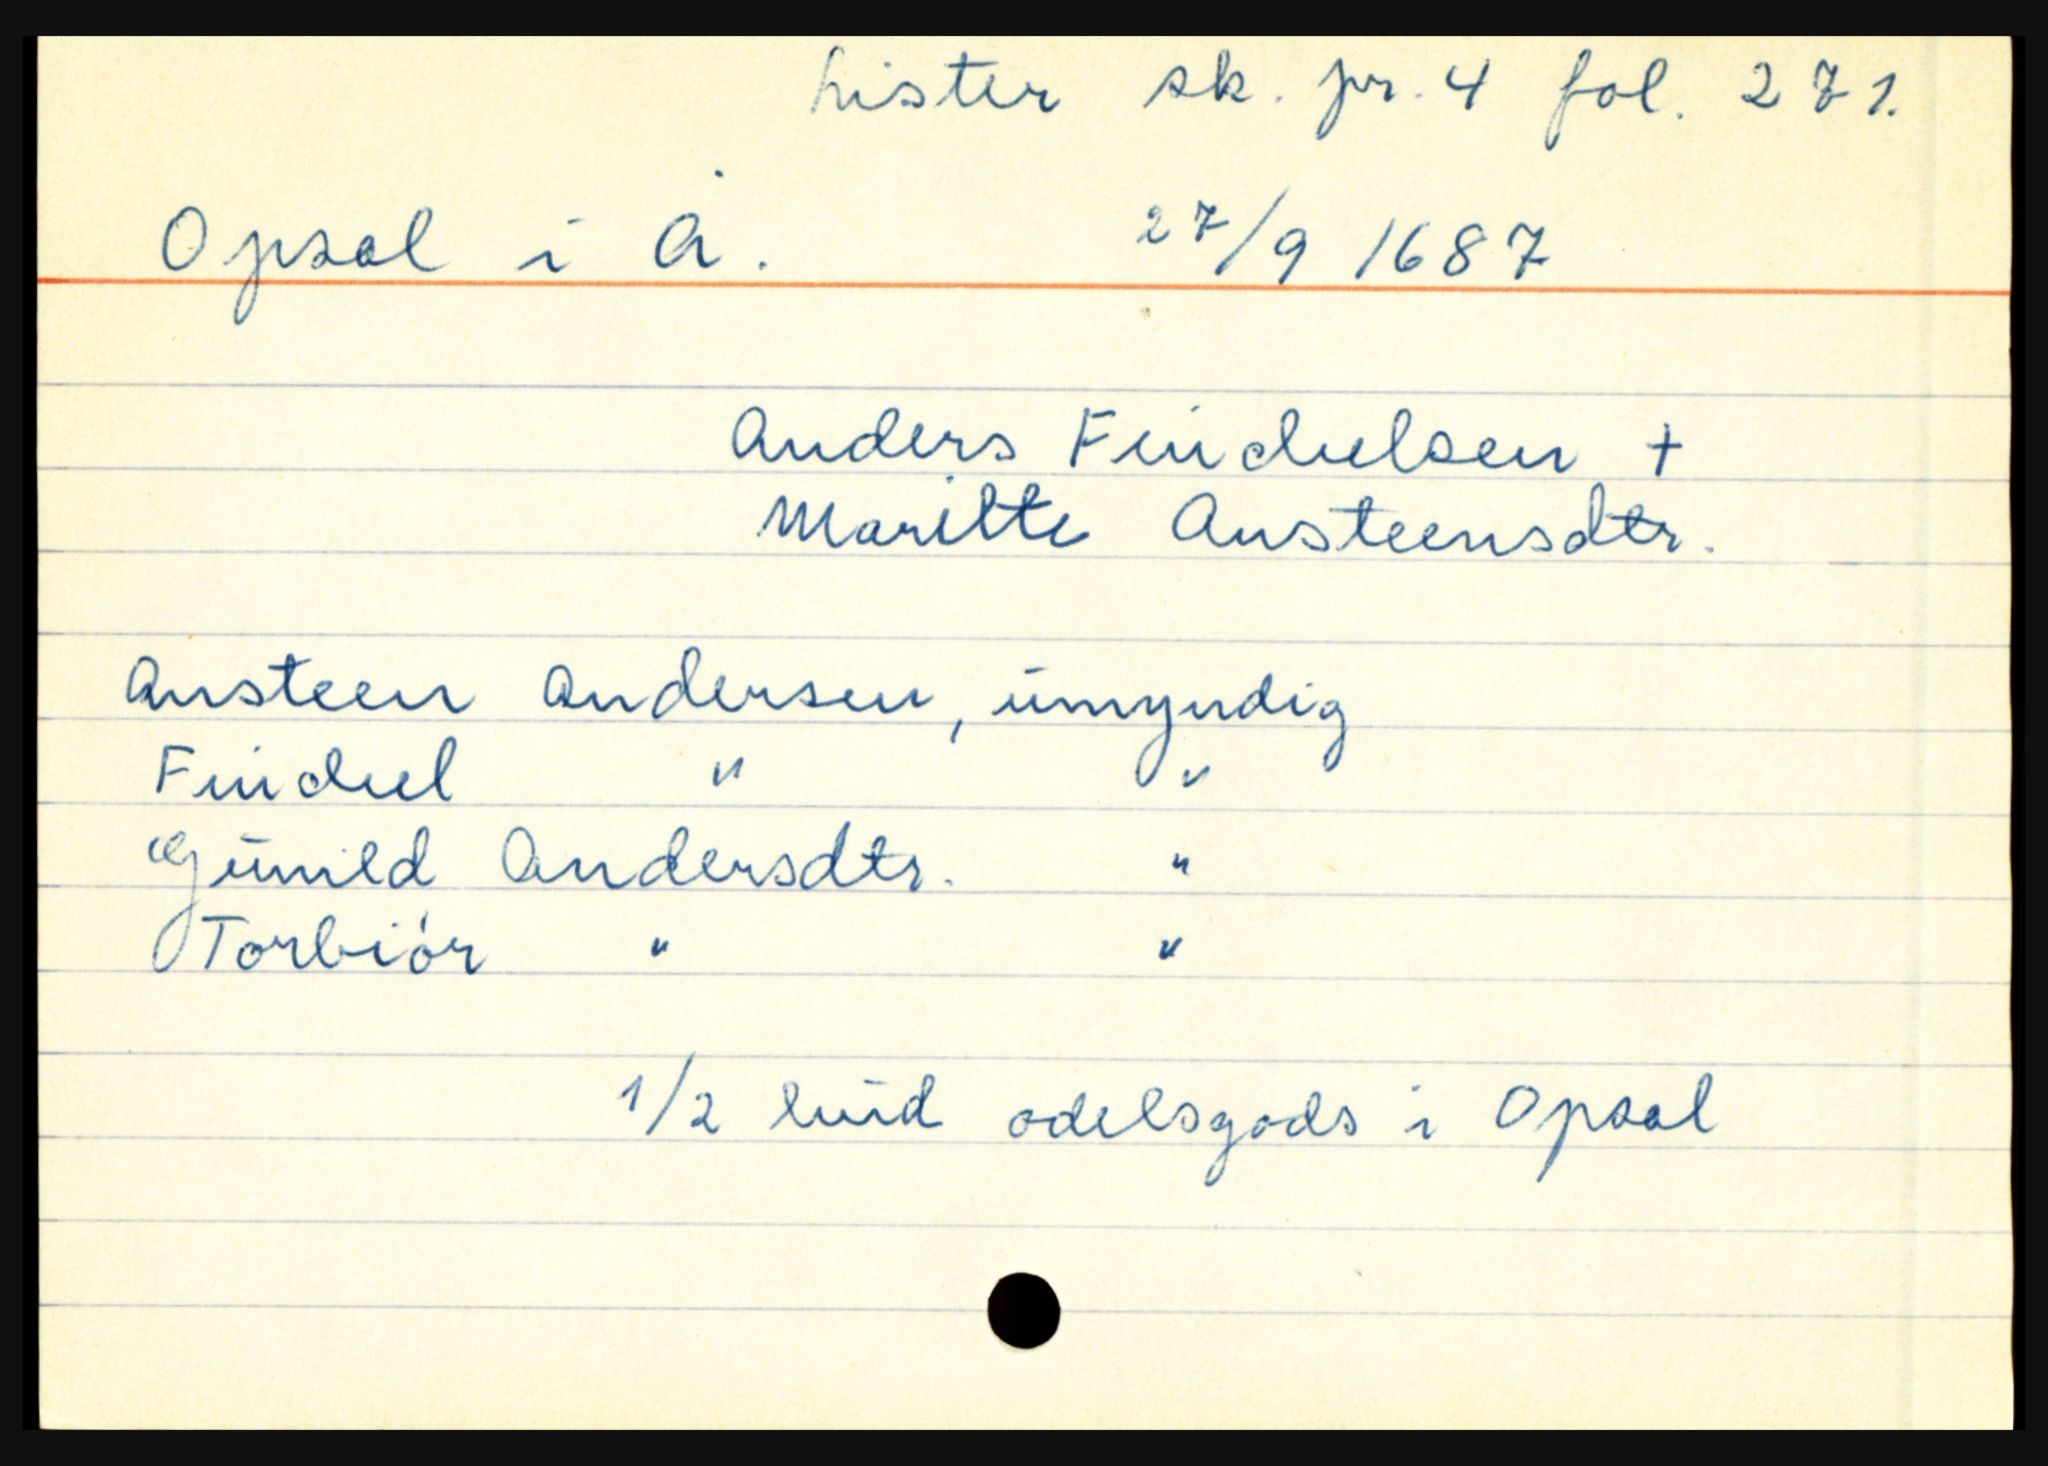 Lister sk. pr. 4 fol. 271.
Opsal i Å. 27/9 1687
Anders Finduelsen +
Maritte Austeensdtr.
Austeen Andersen, umyndig
Finduel " "
Gunild Andersdtr. "
Torbiór " "
1/2 hud odelsgods i Opsal